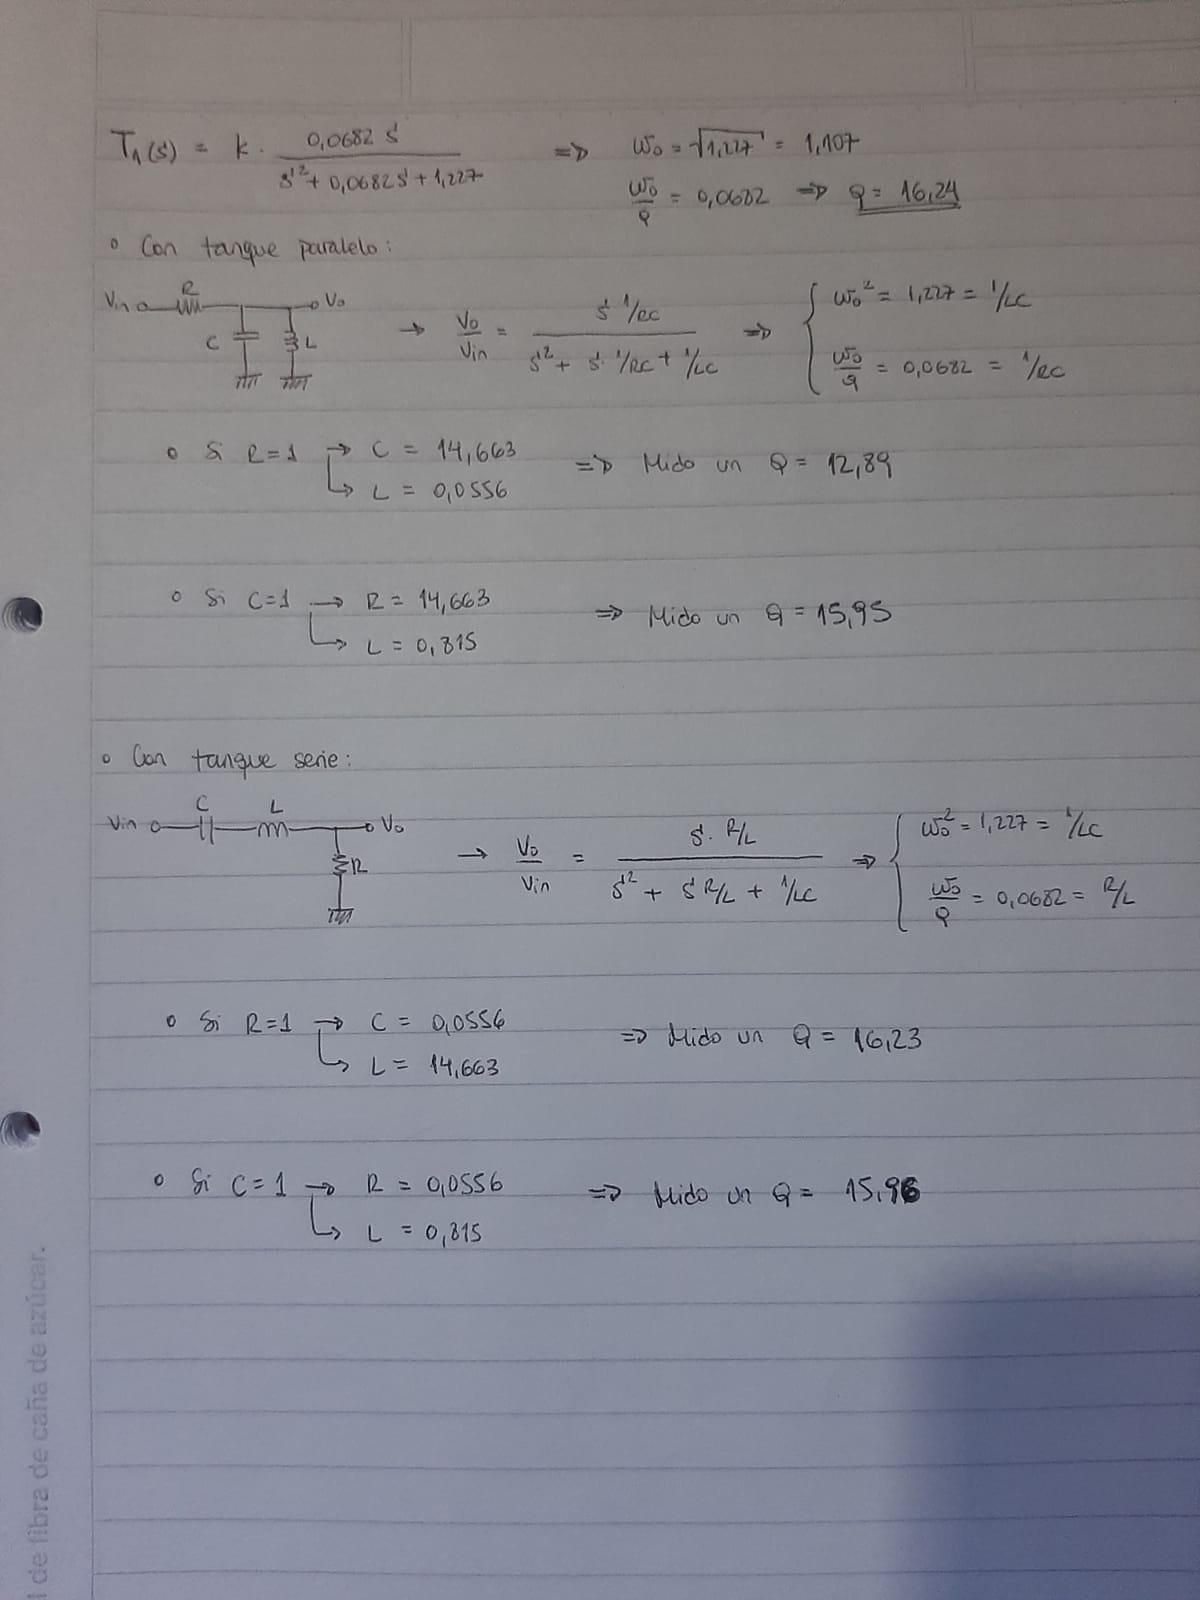 T₁(s) = k · 0,0682 s / (s² + 0,0682 s + 1,227) => ω₀ = √1,227 = 1,107
ω₀/Q = 0,0682 => Q = 16,24
° Con tanque paralelo:
Vin R Vo C L → Vo/Vin = s 1/RC / (s² + s · 1/RC + 1/LC) => { ω₀² = 1,227 = 1/LC
ω₀/Q = 0,0682 = 1/RC
° Si R=1 → C = 14,663 => Mido un Q = 12,89
↳ L = 0,0556
° Si C=1 → R = 14,663 => Mido un Q = 15,95
↳ L = 0,815
° Con tanque serie:
Vin C L Vo R → Vo/Vin = s · R/L / (s² + s R/L + 1/LC) => { ω₀² = 1,227 = 1/LC
ω₀/Q = 0,0682 = R/L
° Si R=1 → C = 0,0556 => Mido un Q = 16,23
↳ L = 14,663
° Si C=1 → R = 0,0556 => Mido un Q = 15,96
↳ L = 0,815
l de fibra de caña de azúcar.